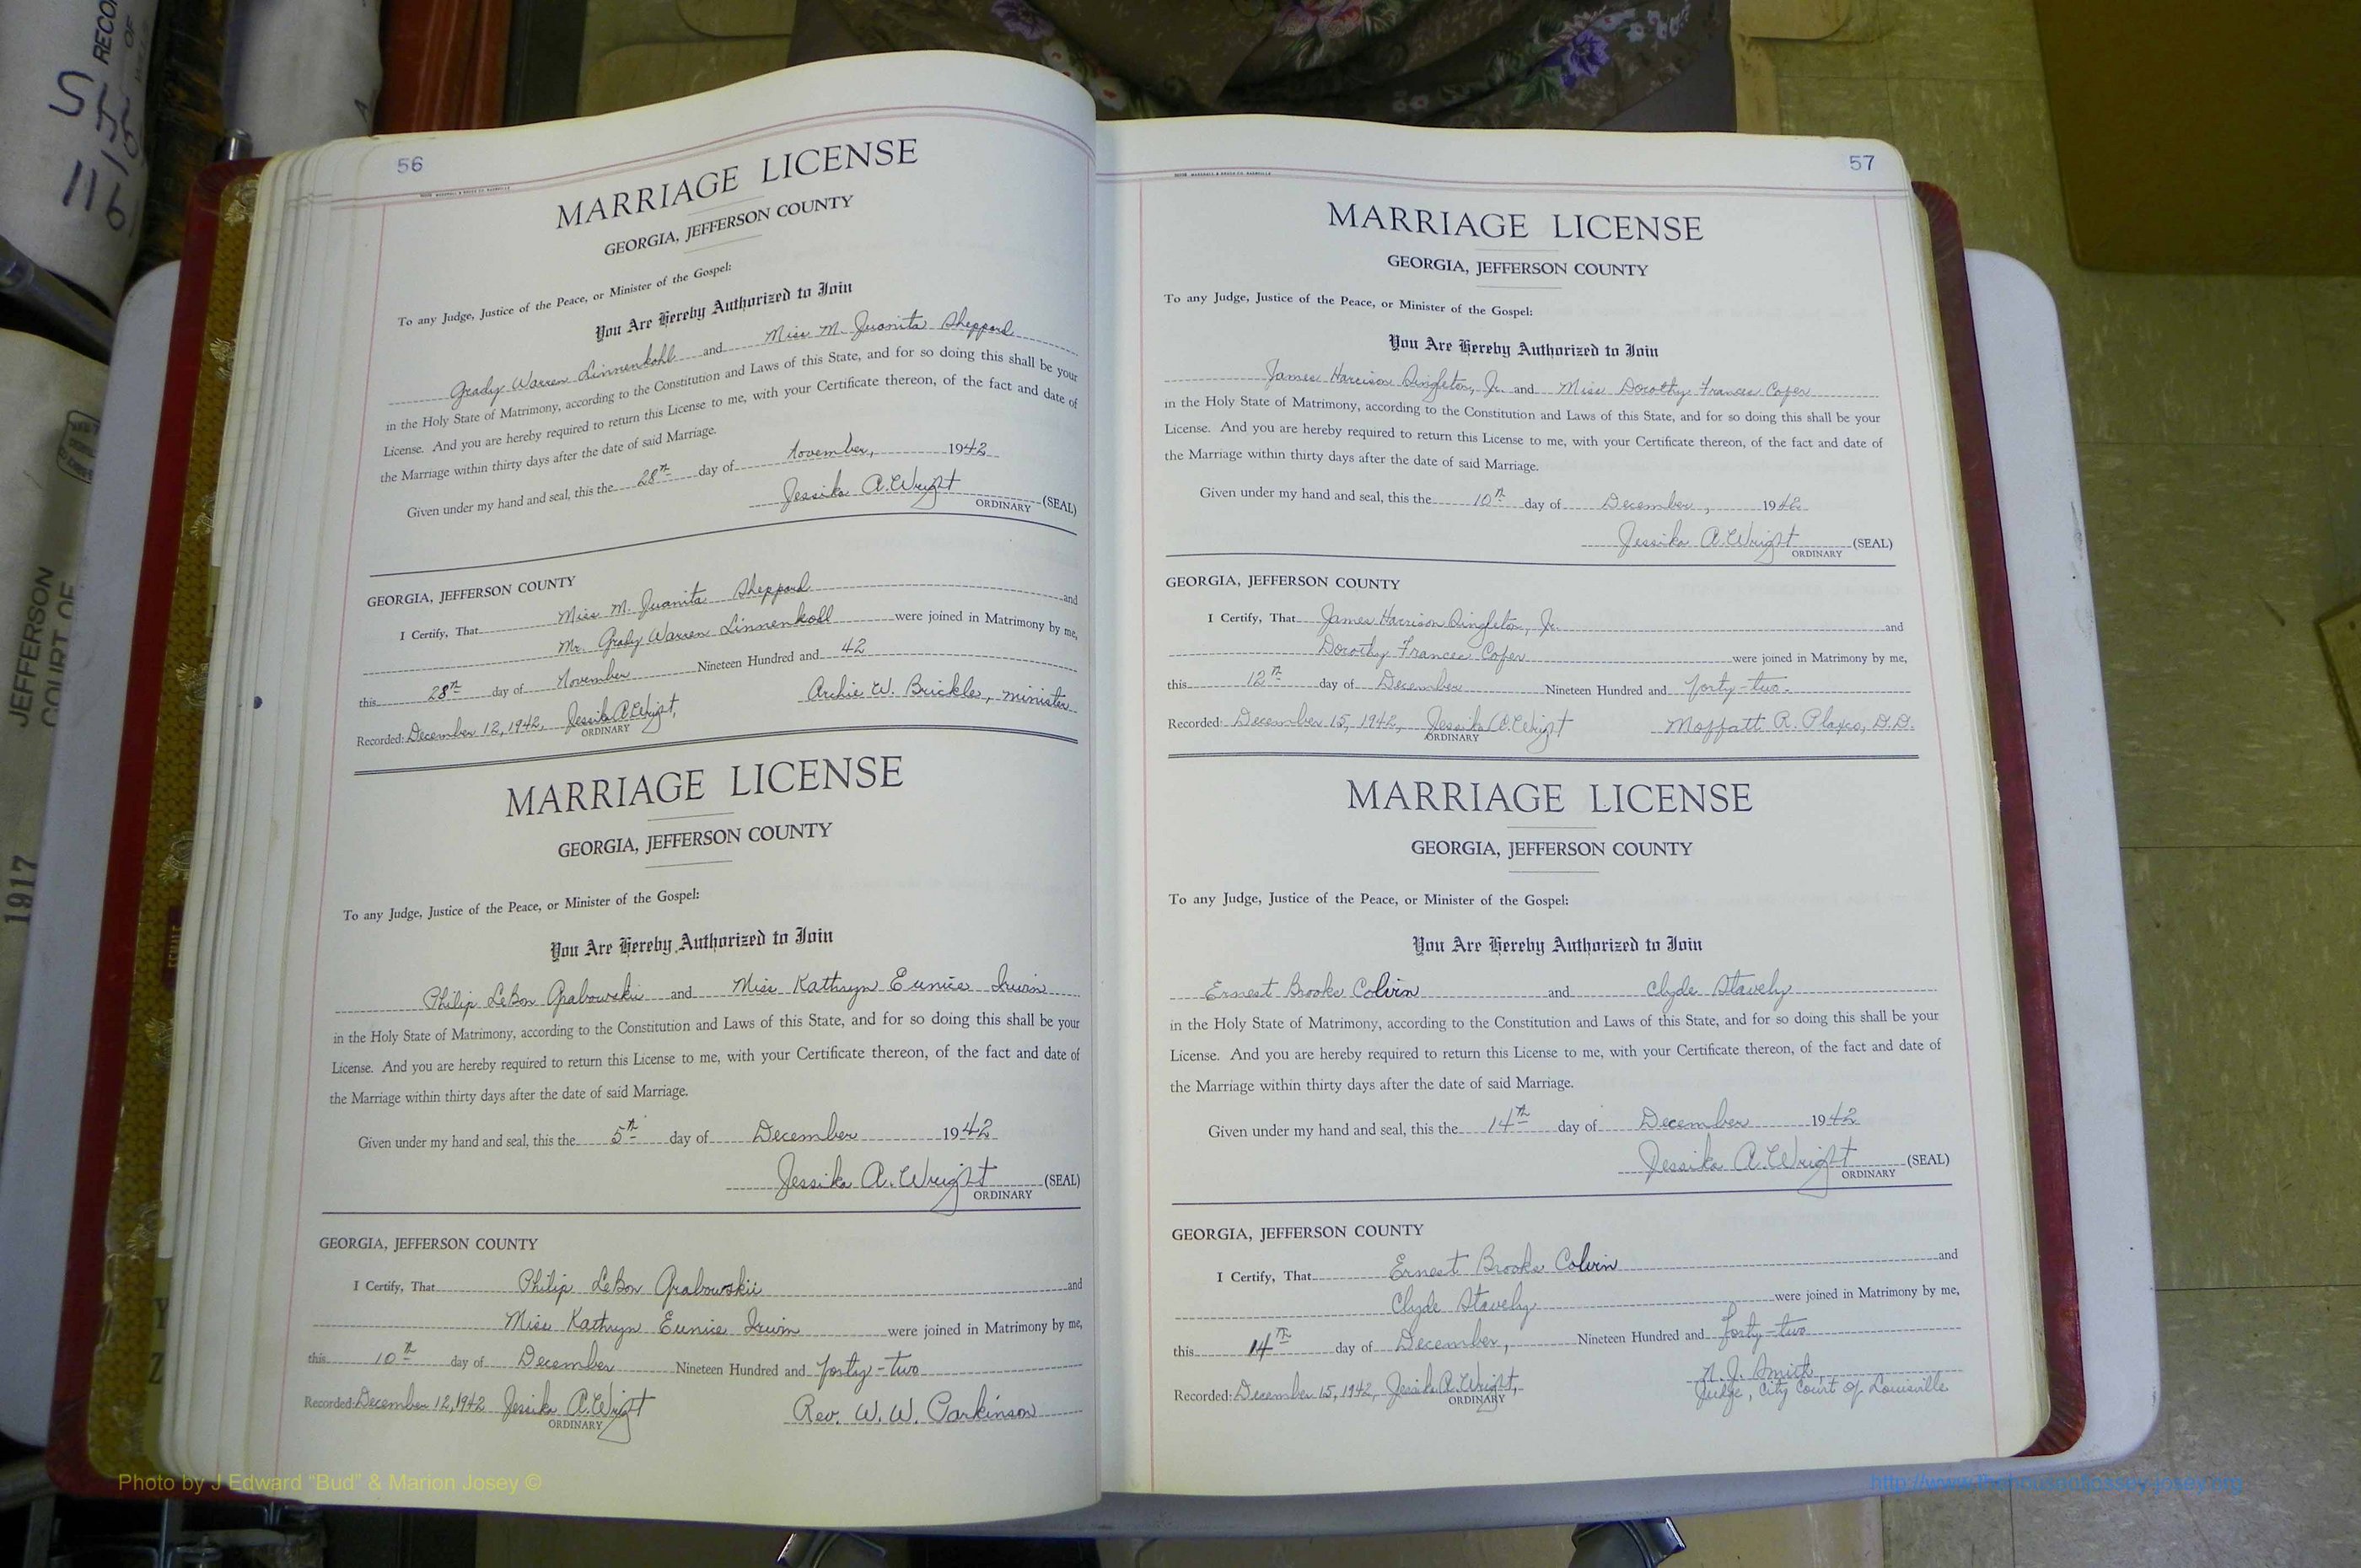 56
MARRIAGE LICENSE
GEORGIA, JEFFERSON COUNTY
To any Judge, Justice of the Peace, or Minister of the Gospel:
You Are Hereby Authorized to Join
Grady Warren Linnenkohl and Miss M. Juanita Sheppard
in the Holy State of Matrimony, according to the Constitution and Laws of this State, and for so doing this shall be your
License. And you are hereby required to return this License to me, with your Certificate thereon, of the fact and date of
the Marriage within thirty days after the date of said Marriage.
Given under my hand and seal, this the 28th day of November, 1942
Jessika A. Wright (SEAL)
ORDINARY
GEORGIA, JEFFERSON COUNTY
I Certify, That Miss M. Juanita Sheppard and
Mr. Grady Warren Linnenkohl were joined in Matrimony by me,
this 28th day of November Nineteen Hundred and 42
Archie W. Brickle, minister
Recorded: December 12, 1942, Jessika A. Wright,
ORDINARY
MARRIAGE LICENSE
GEORGIA, JEFFERSON COUNTY
To any Judge, Justice of the Peace, or Minister of the Gospel:
You Are Hereby Authorized to Join
Philip LeBon Grabowskii and Miss Kathryn Eunice Irwin
in the Holy State of Matrimony, according to the Constitution and Laws of this State, and for so doing this shall be your
License. And you are hereby required to return this License to me, with your Certificate thereon, of the fact and date of
the Marriage within thirty days after the date of said Marriage.
Given under my hand and seal, this the 5th day of December 1942
Jessika A. Wright (SEAL)
ORDINARY
GEORGIA, JEFFERSON COUNTY
I Certify, That Philip LeBon Grabowskii and
Miss Kathryn Eunice Irwin were joined in Matrimony by me,
this 10th day of December Nineteen Hundred and forty-two
Recorded: December 12, 1942 Jessika A. Wright Rev. W. W. Parkinson
ORDINARY
57
MARRIAGE LICENSE
GEORGIA, JEFFERSON COUNTY
To any Judge, Justice of the Peace, or Minister of the Gospel:
You Are Hereby Authorized to Join
James Harrison Singleton, Jr. and Miss Dorothy Frances Cofer
in the Holy State of Matrimony, according to the Constitution and Laws of this State, and for so doing this shall be your
License. And you are hereby required to return this License to me, with your Certificate thereon, of the fact and date of
the Marriage within thirty days after the date of said Marriage.
Given under my hand and seal, this the 10th day of December, 1942
Jessika A. Wright (SEAL)
ORDINARY
GEORGIA, JEFFERSON COUNTY
I Certify, That James Harrison Singleton, Jr. and
Dorothy Frances Cofer were joined in Matrimony by me,
this 12th day of December Nineteen Hundred and forty-two.
Recorded: December 15, 1942, Jessika A. Wright Moffatt R. Plaxco, D.D.
ORDINARY
MARRIAGE LICENSE
GEORGIA, JEFFERSON COUNTY
To any Judge, Justice of the Peace, or Minister of the Gospel:
You Are Hereby Authorized to Join
Ernest Brooks Colvin and Clyde Stavely
in the Holy State of Matrimony, according to the Constitution and Laws of this State, and for so doing this shall be your
License. And you are hereby required to return this License to me, with your Certificate thereon, of the fact and date of
the Marriage within thirty days after the date of said Marriage.
Given under my hand and seal, this the 14th day of December 1942
Jessika A. Wright (SEAL)
ORDINARY
GEORGIA, JEFFERSON COUNTY
I Certify, That Ernest Brooks Colvin and
Clyde Stavely were joined in Matrimony by me,
this 14th day of December, Nineteen Hundred and forty-two
J. Smith,
Recorded: December 15, 1942, Jessika A. Wright, Judge, City Court of Louisville
ORDINARY
JEFFERSON
COURT OF
1917
Photo by J Edward "Bud" & Marion Josey ©